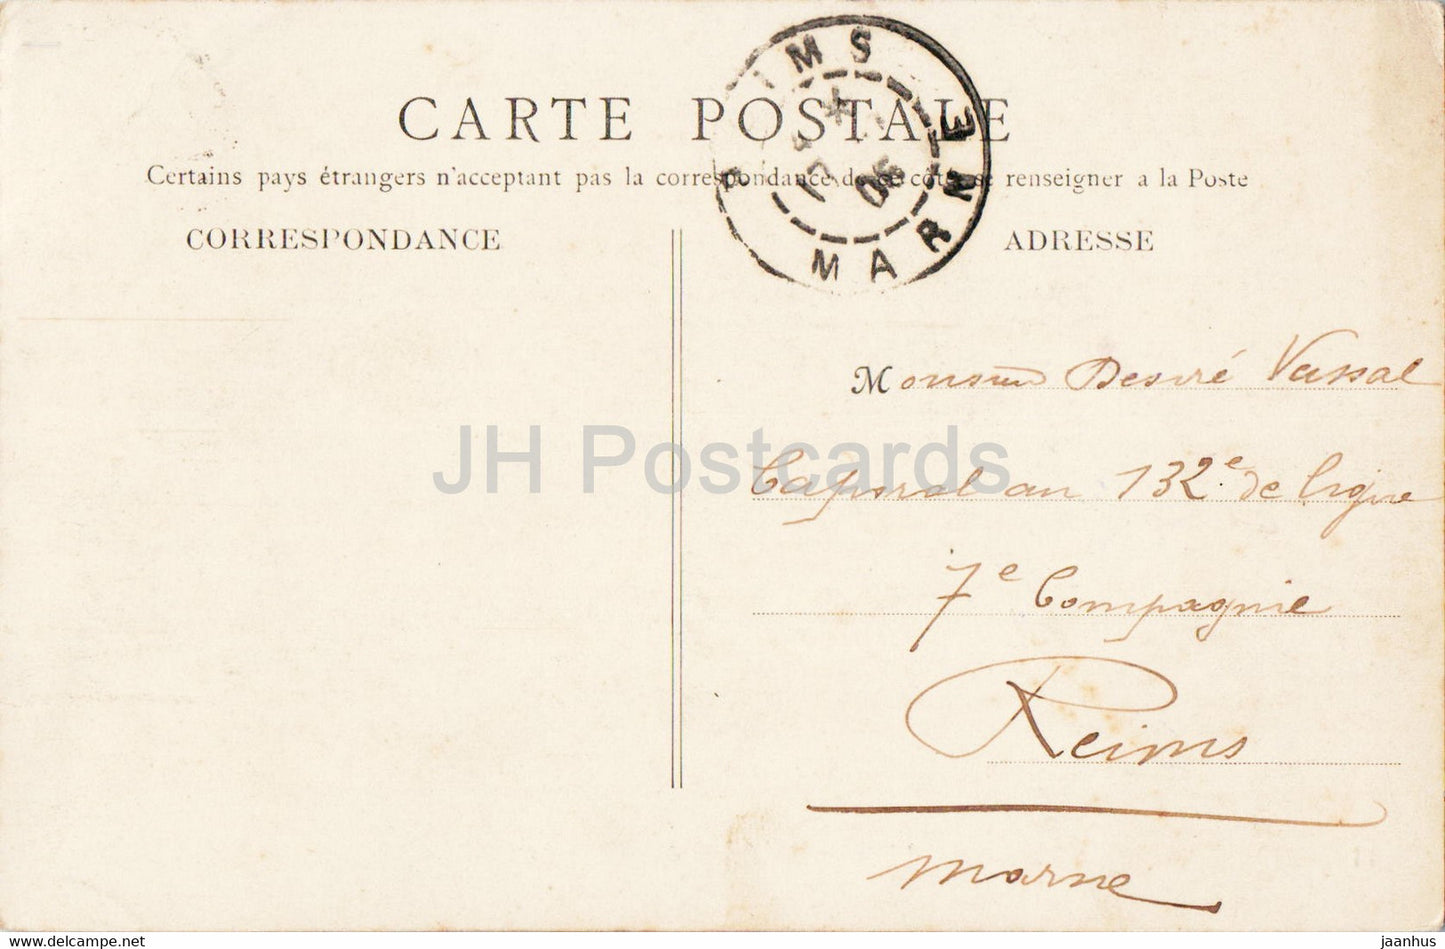 REIMS
MARNE
06
CARTE POSTALE
Certains pays étrangers n'acceptant pas la correspondance de ce côté se renseigner a la Poste
CORRESPONDANCE
ADRESSE
Monsieur Desiré Vassal
Caporal au 132e de ligne
7e Compagnie
Reims
Marne
JH Postcards
hipstamp.com/store/jaanhus
jaanhus